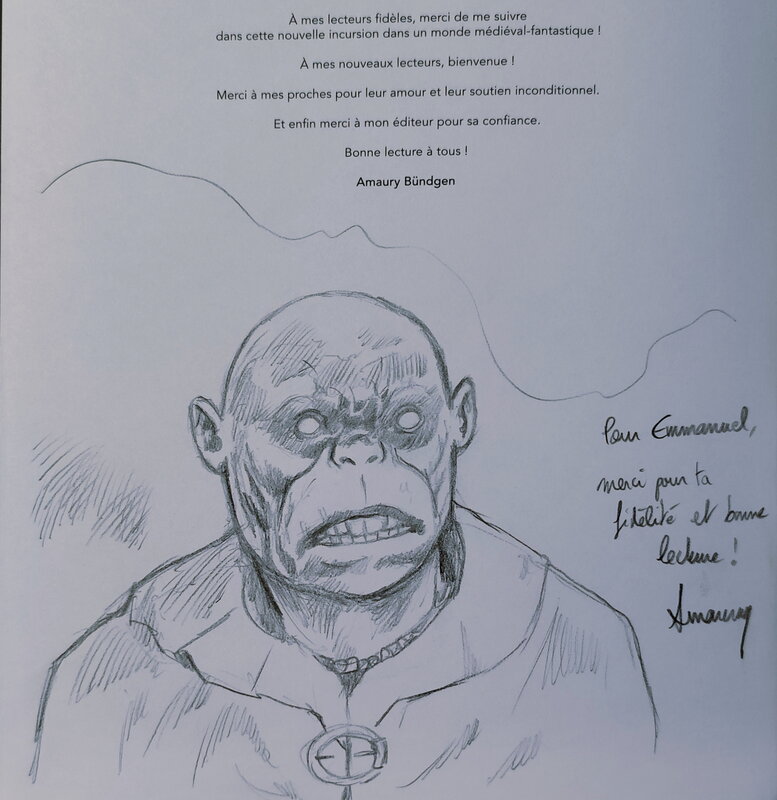 À mes lecteurs fidèles, merci de me suivre
dans cette nouvelle incursion dans un monde médiéval-fantastique !
À mes nouveaux lecteurs, bienvenue !
Merci à mes proches pour leur amour et leur soutien inconditionnel.
Et enfin merci à mon éditeur pour sa confiance.
Bonne lecture à tous !
Amaury Bündgen
Pour Emmanuel,
merci pour ta
fidélité et bonne
lecture !
Amaury